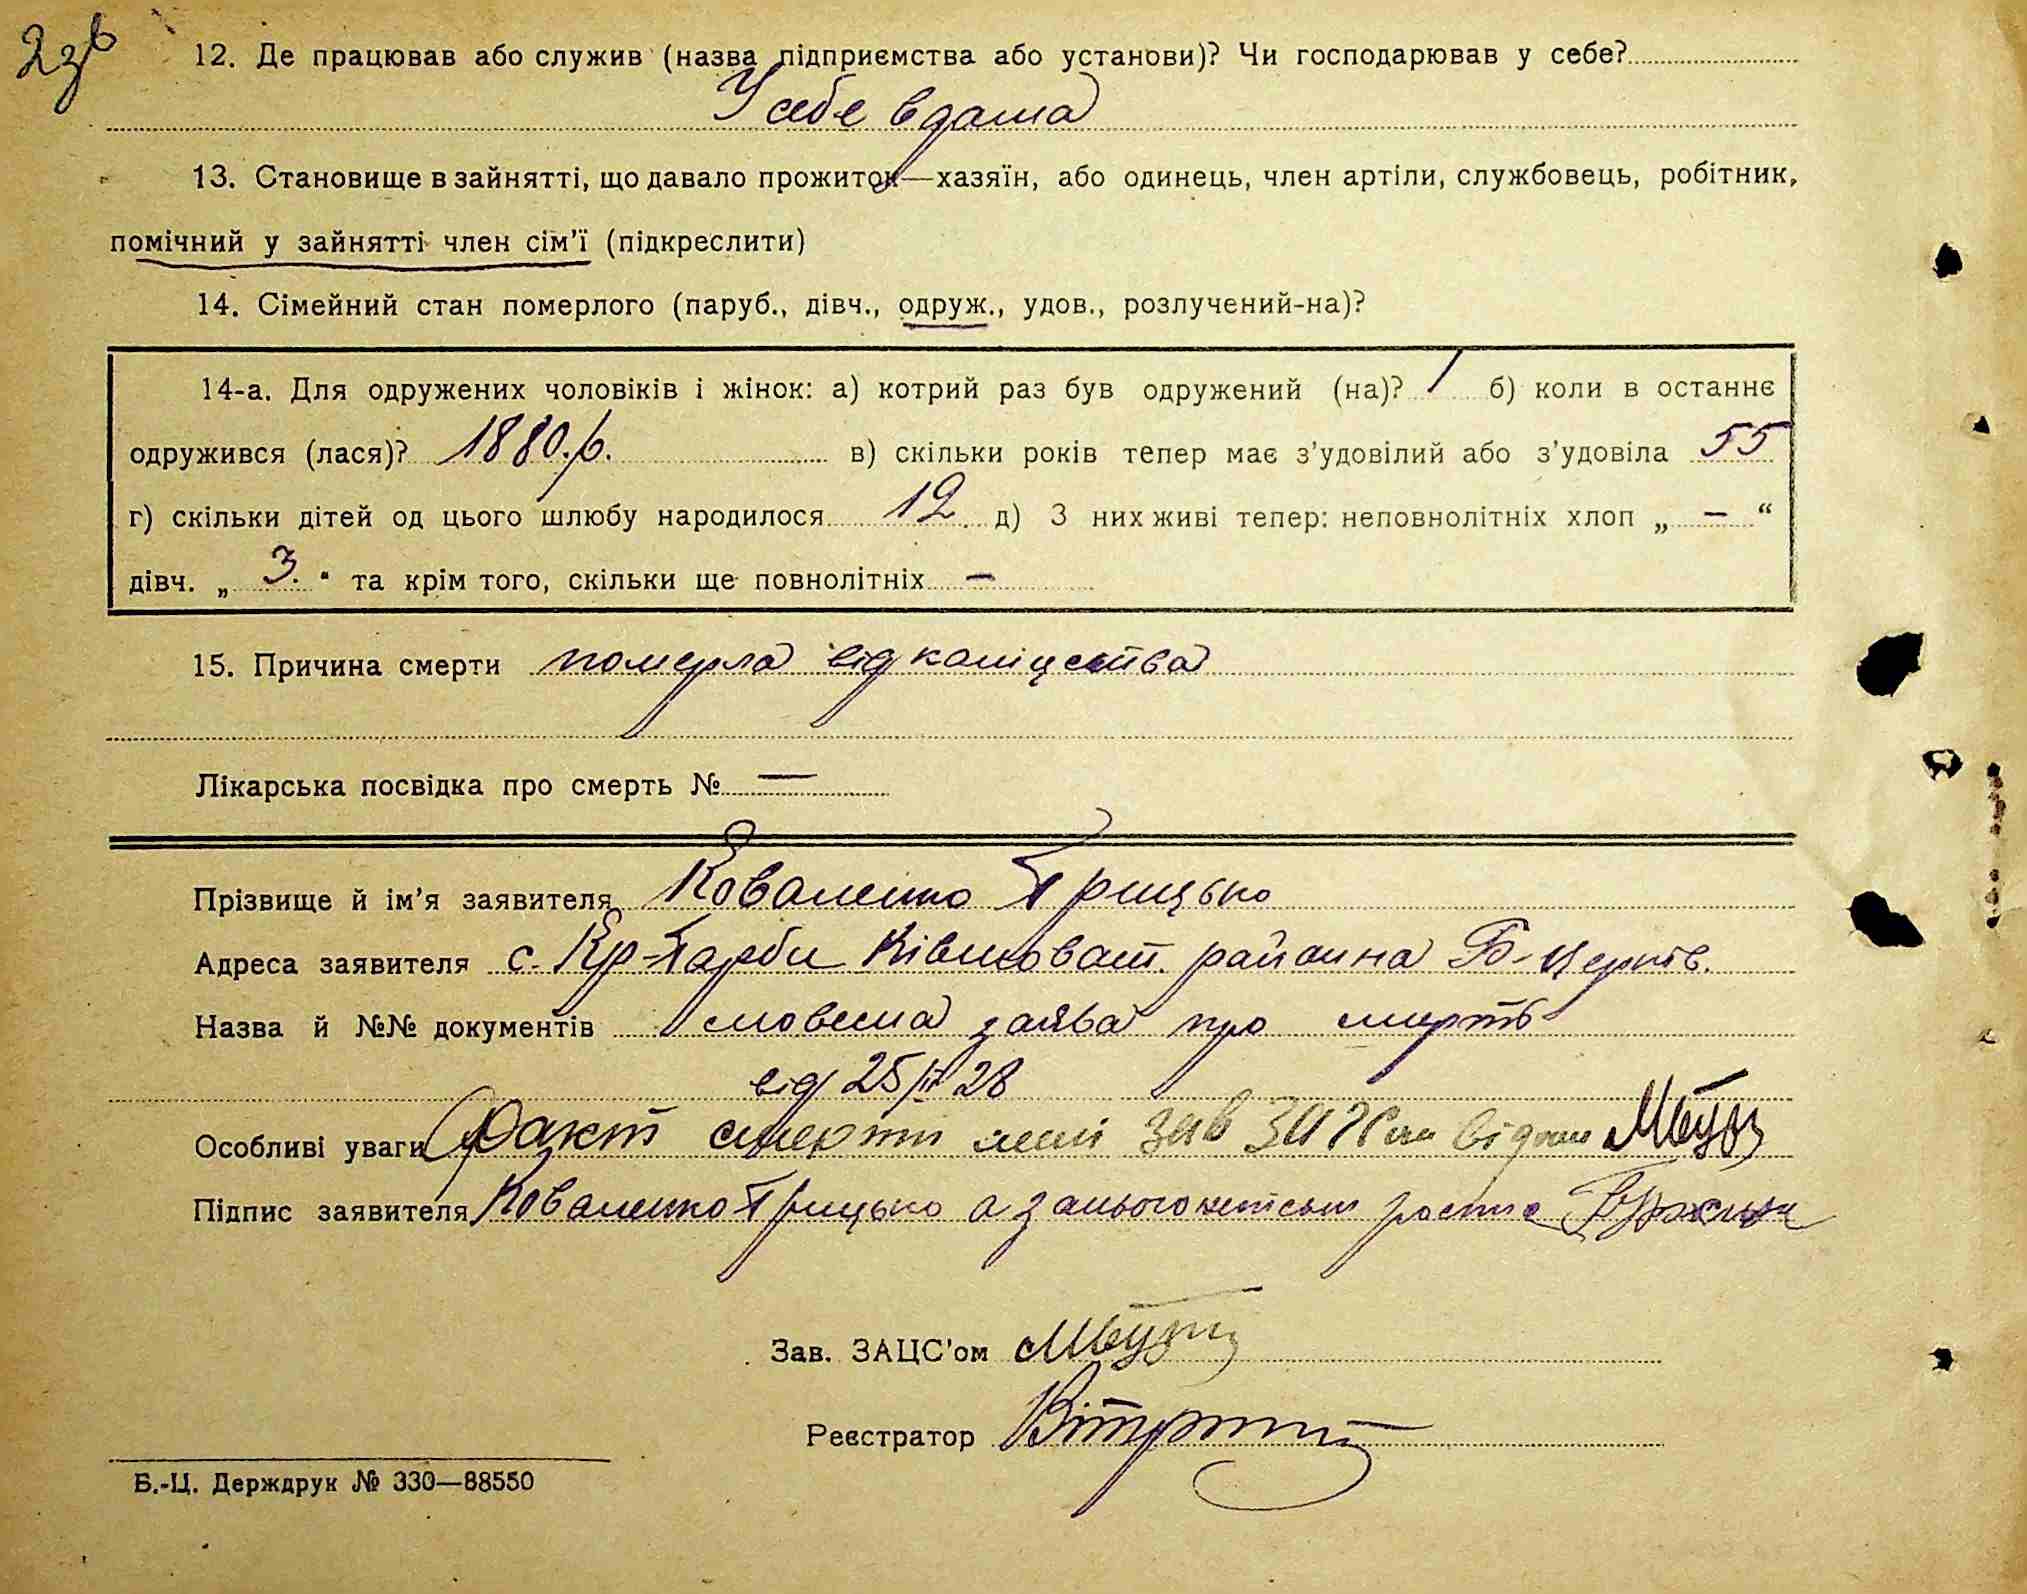 2зв
12. Де працював або служив (назва підприємства або установи)? Чи господарював у себе?
У себе вдома
13. Становище в зайнятті, що давало прожиток—хазяїн, або одинець, член артіли, службовець, робітник,
помічний у зайнятті член сім'ї (підкреслити)
14. Сімейний стан померлого (паруб., дівч., одруж., удов., розлучений-на)?
14-а. Для одружених чоловіків і жінок: а) котрий раз був одружений (на)? 1 б) коли в останнє
одружився (лася)? 1880.р. в) скільки років тепер має з'удовілий або з'удовіла 55
г) скільки дітей од цього шлюбу народилося 12. д) З них живі тепер: неповнолітніх хлоп „ — “
дівч. „ 3. “ та крім того, скільки ще повнолітніх —
15. Причина смерти померла від
Лікарська посвідка про смерть № —
Прізвище й ім'я заявителя Коваленко Грицько
Адреса заявителя с. Кр-Гарби Ківшоват. района Б-Церків.
Назва й №№ документів словесна заява про смерть
від 25/ 28
Особливі уваги Факт смерти мені зав ЗАГСом відом
Підпис заявителя Коваленко Грицько а за нього
Зав. ЗАЦС'ом
Реєстратор
Б.-Ц. Держдрук № 330—88550